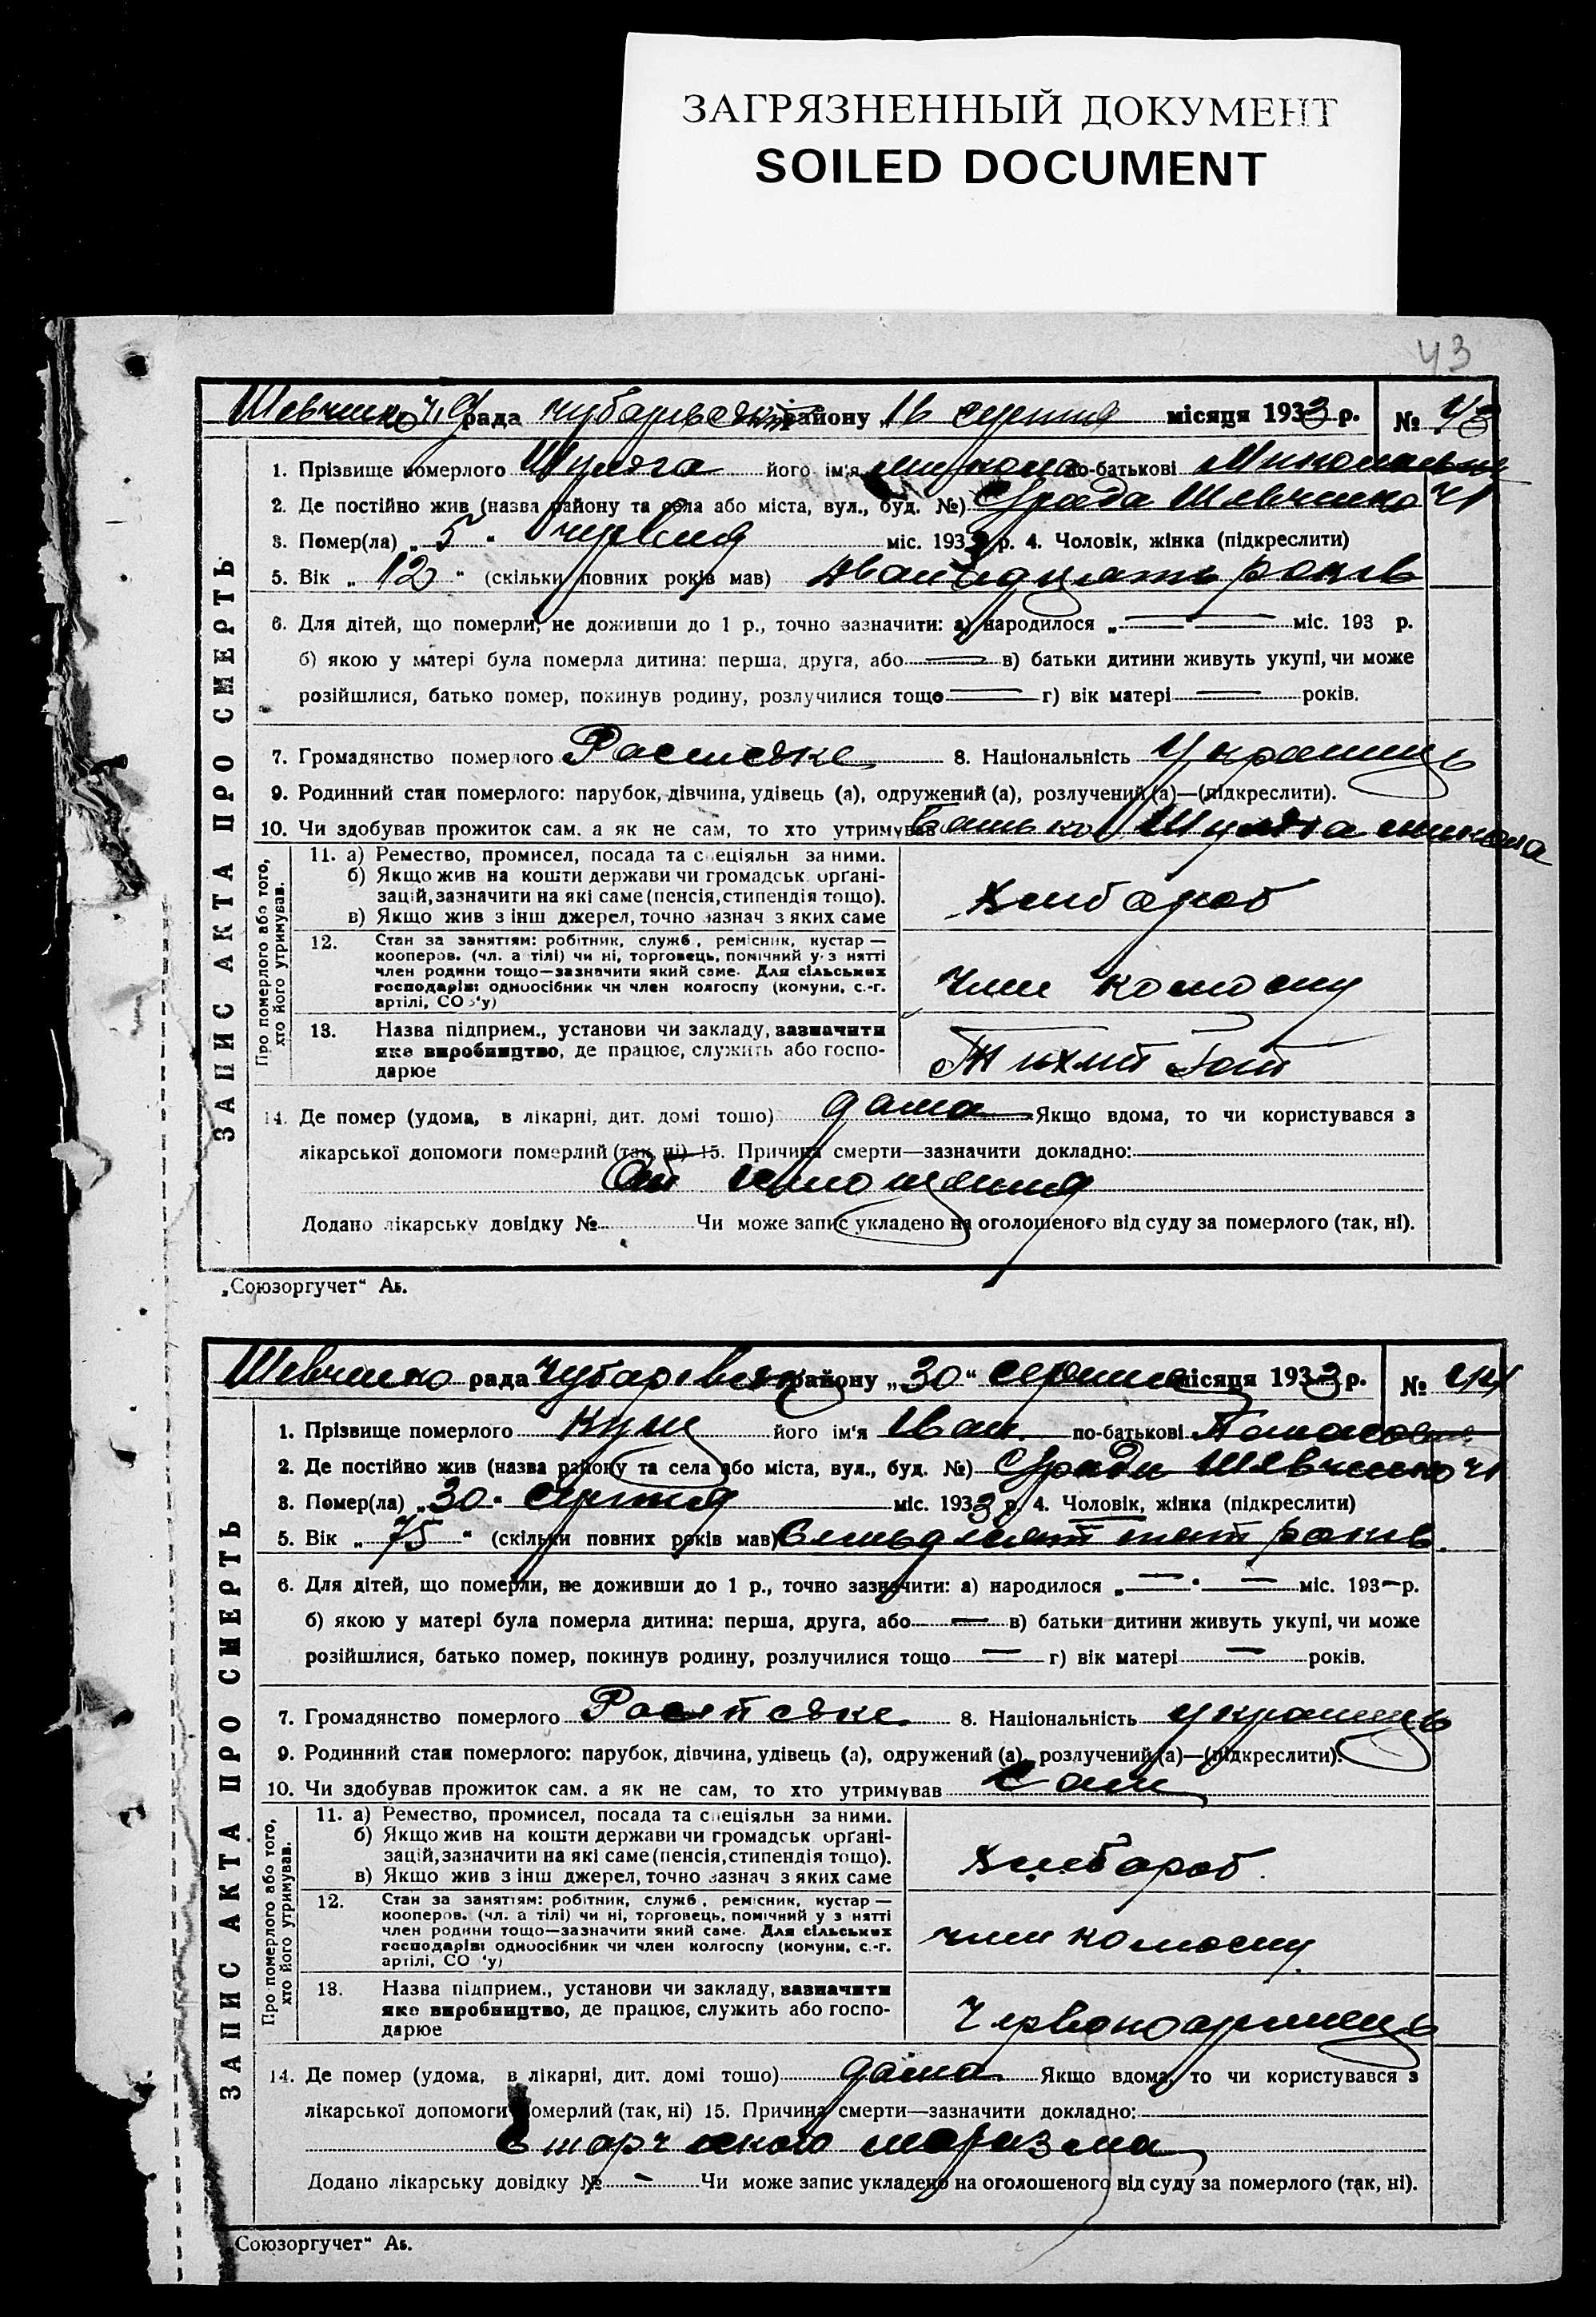 ЗАГРЯЗНЕННЫЙ ДОКУМЕНТ
SOILED DOCUMENT
43
рада района 16 серпня місяця 1933 р. № 43
ЗАПИС АКТА ПРО СМЕРТЬ
1. Прізвище померлого Шуляга його ім'я Микола по-батькові
2. Де постійно жив (назва району та села або міста, вул., буд. №) С/рада Шевченко
3. Помер(ла) „ 5 " червня міс. 1933 р. 4. Чоловік, жінка (підкреслити)
5. Вік „ 12 " (скільки повних років мав) років
6. Для дітей, що померли, не доживши до 1 р., точно зазначити: а) народилося „ — — міс. 193 р.
б) якою у матері була померла дитина: перша, друга, або — в) батьки дитини живуть укупі, чи може
розійшлися, батько помер, покинув родину, розлучилися тощо — г) вік матері — років.
7. Громадянство померлого 8. Національність Українець
9. Родинний стан померлого: парубок, дівчина, удівець (а), одружений (а), розлучений (а)—(підкреслити).
10. Чи здобував прожиток сам. а як не сам, то хто утримував батько Шуляга Микола
Про померлого або того, хто його утримував.
11. а) Ремество, промисел, посада та спеціяльн за ними.
б) Якщо жив на кошти держави чи громадськ. орґані-
зацій, зазначити на які саме (пенсія, стипендія тощо).
в) Якщо жив з інш джерел, точно зазнач з яких саме
хлібароб
12. Стан за заняттям: робітник, служб., ремісник, кустар —
кооперов. (чл. а тілі) чи ні, торговець, помічний у з нятті
член родини тощо—зазначити який саме. Для сільських
господарів: одноосібник чи член колгоспу (комуни, с.-г.
артілі, СО у)
член колгоспу
13. Назва підприєм., установи чи закладу, зазначити
яке виробництво, де працює, служить або госпо-
дарює
14. Де помер (удома, в лікарні, дит. домі тошо) дома Якщо вдома, то чи користувався з
лікарської допомоги померлий (так, ні) 15. Причина смерти—зазначити докладно:
От истощения
Додано лікарську довідку № Чи може запис укладено на оголошеного від суду за померлого (так, ні).
„Союзоргучет" Аб.
Шевченко рада района „ 30 " серпня місяця 1933 р. № 44
ЗАПИС АКТА ПРО СМЕРТЬ
1. Прізвище померлого Кущ його ім'я Іван по-батькові
2. Де постійно жив (назва району та села або міста, вул., буд. №) С/рада Шевченко
3. Помер(ла) „ 30 " серпня міс. 1933 р. 4. Чоловік, жінка (підкреслити)
5. Вік „ 75 " (скільки повних років мав) років
6. Для дітей, що померли, не доживши до 1 р., точно зазначити: а) народилося „ — " — міс. 193—р.
б) якою у матері була померла дитина: перша, друга, або — в) батьки дитини живуть укупі, чи може
розійшлися, батько помер, покинув родину, розлучилися тощо — г) вік матері — років.
7. Громадянство померлого 8. Національність українець
9. Родинний стан померлого: парубок, дівчина, удівець (а), одружений (а), розлучений (а)—(підкреслити).
10. Чи здобував прожиток сам. а як не сам, то хто утримував сам
Про померлого або того, хто його утримував.
11. а) Ремество, промисел, посада та спеціяльн за ними.
б) Якщо жив на кошти держави чи громадськ орґані-
зацій, зазначити на які саме (пенсія, стипендія тощо).
в) Якщо жив з інш джерел, точно зазнач з яких саме
хлібароб.
12. Стан за заняттям: робітник, служб., ремісник, кустар —
кооперов. (чл. а тілі) чи ні, торговець, помічний у з нятті
член родини тощо—зазначити який саме. Для сільських
господарів: одноосібник чи член колгоспу (комуни, с.-г.
артілі, СО у)
член колгоспу
13. Назва підприєм., установи чи закладу, зазначити
яке виробництво, де працює, служить або госпо-
дарює
Червоноармієць
14. Де помер (удома, в лікарні, дит. домі тошо) дома Якщо вдома, то чи користувався з
лікарської допомоги померлий (так, ні) 15. Причина смерти—зазначити докладно:
Старческого маразма
Додано лікарську довідку № — Чи може запис укладено на оголошеного від суду за померлого (так, ні).
Союзоргучет" Аб.